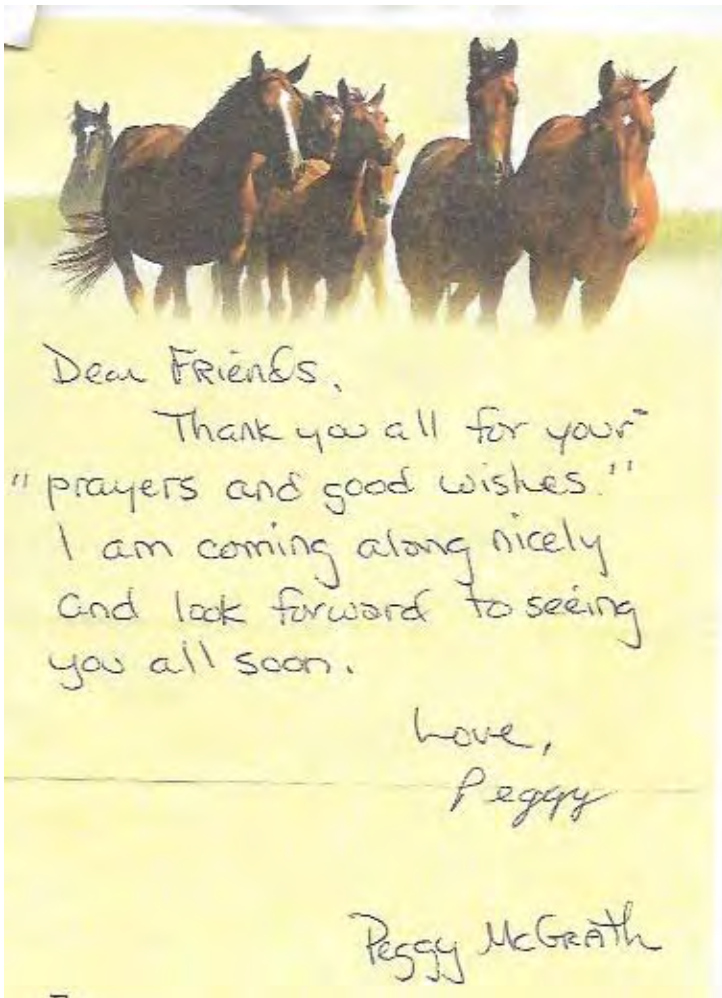 Dear Friends,
Thank you all for your
"prayers and good wishes."
I am coming along nicely
and look forward to seeing
you all soon.
Love,
Peggy
Peggy McGrath